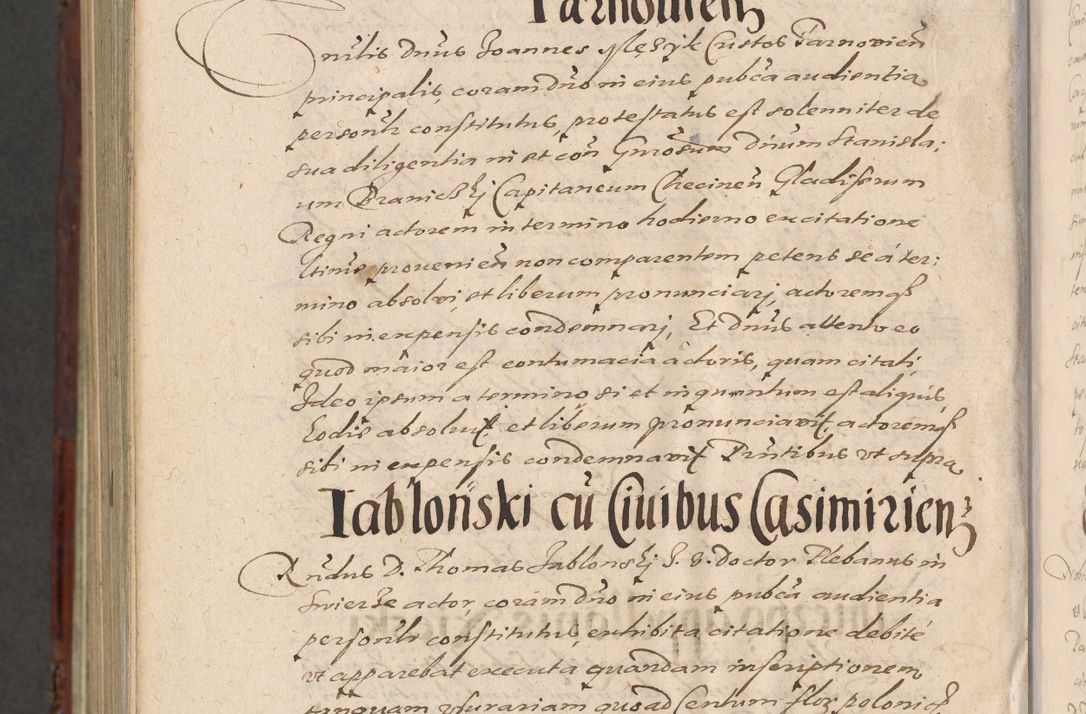 Tarnouien
nilis Dnus Joannes Męzyk Custos Tarnovien
principalis, coram dno in eius pubca audientia
personlr constitutus, protestatus est solenniter de
sua diligentia in et con Gnrosum Dnum Stanisla;
um Branicskj Capitaneum Checinen Gladiferum
Regni actorem in termino hodierno ex citatione
provenien non comparentem petens se á ter;
mino absolvi, et liberum pronunciarj, actoremq
sibi in expensis condemnarj, Et Dnus attento eo
quod maior est contumacia actoris, quam citati,
Ideo ipsum a termino si et in quantum est aliquis,
Eodie absoluit et liberum pronunciavit, actoremq
sibi in expensis condemnavit Prntibus ut supra
Iabłoński cū Ciuibus Casimirien
Rndus D. Thomas Jablonskj S. T. Doctor Plebanus in
actor, coram dno in eius pubca audientia
personlr constitutus, exhibita citatione debite
ut apparebat executa quandam inscriptionem
tanquam usurariam quoad Centum flor polonic